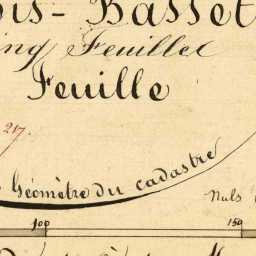 is-Basset
ing Feuilles
Feuille
217.
Géomètre du cadastre
Nuls
100
150